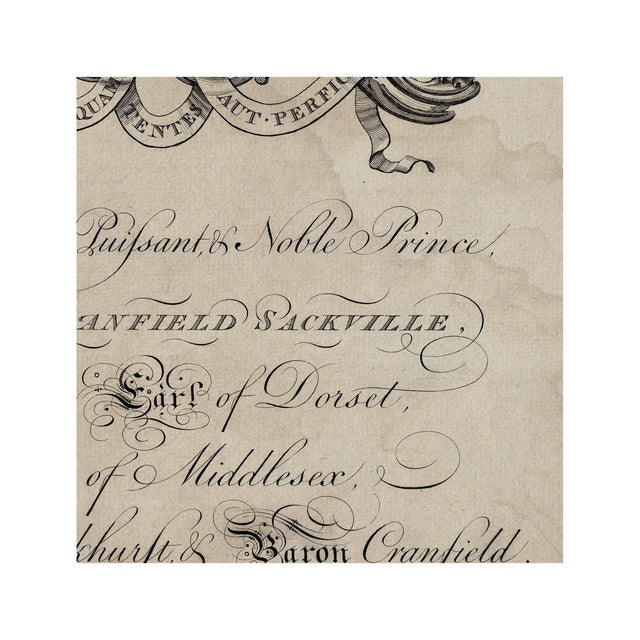 QUAM
TENTES
AUT · PERFIC
Puiſsant, & Noble Prince,
ANFIELD SACKVILLE,
Earl of Dorset,
of Middlesex,
khurſt, & Baron Cranfield.